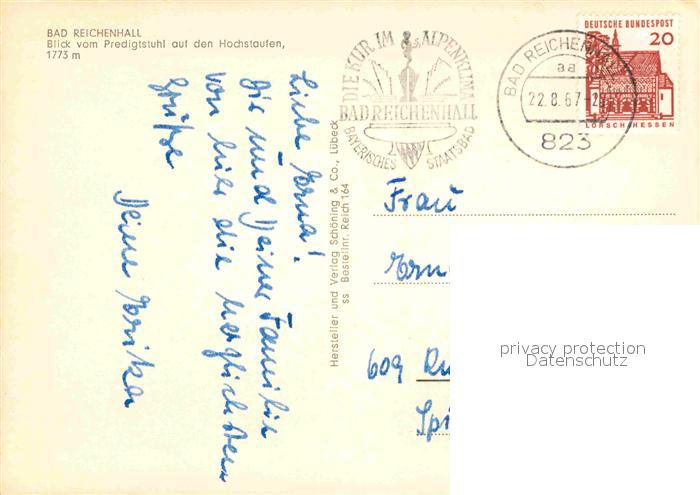 BAD REICHENHALL
Blick vom Predigtstuhl auf den Hochstaufen,
1773 m
Liebe Erna!
Dir und Deiner Familie
von hier die herzlichsten
Grüße
Deine Erika
Hersteller und Verlag Schöning & Co., Lübeck
ss Bestellnr. Reich 164
DIE KUR IM ALPENKLIMA
BAD REICHENHALL
BAYERISCHES STAATSBAD
BAD REICHENHALL
aa
22.8.67
823
DEUTSCHE BUNDESPOST
20
LORSCH HESSEN
Frau
Ern
609 Rü
Spi
privacy protection
Datenschutz